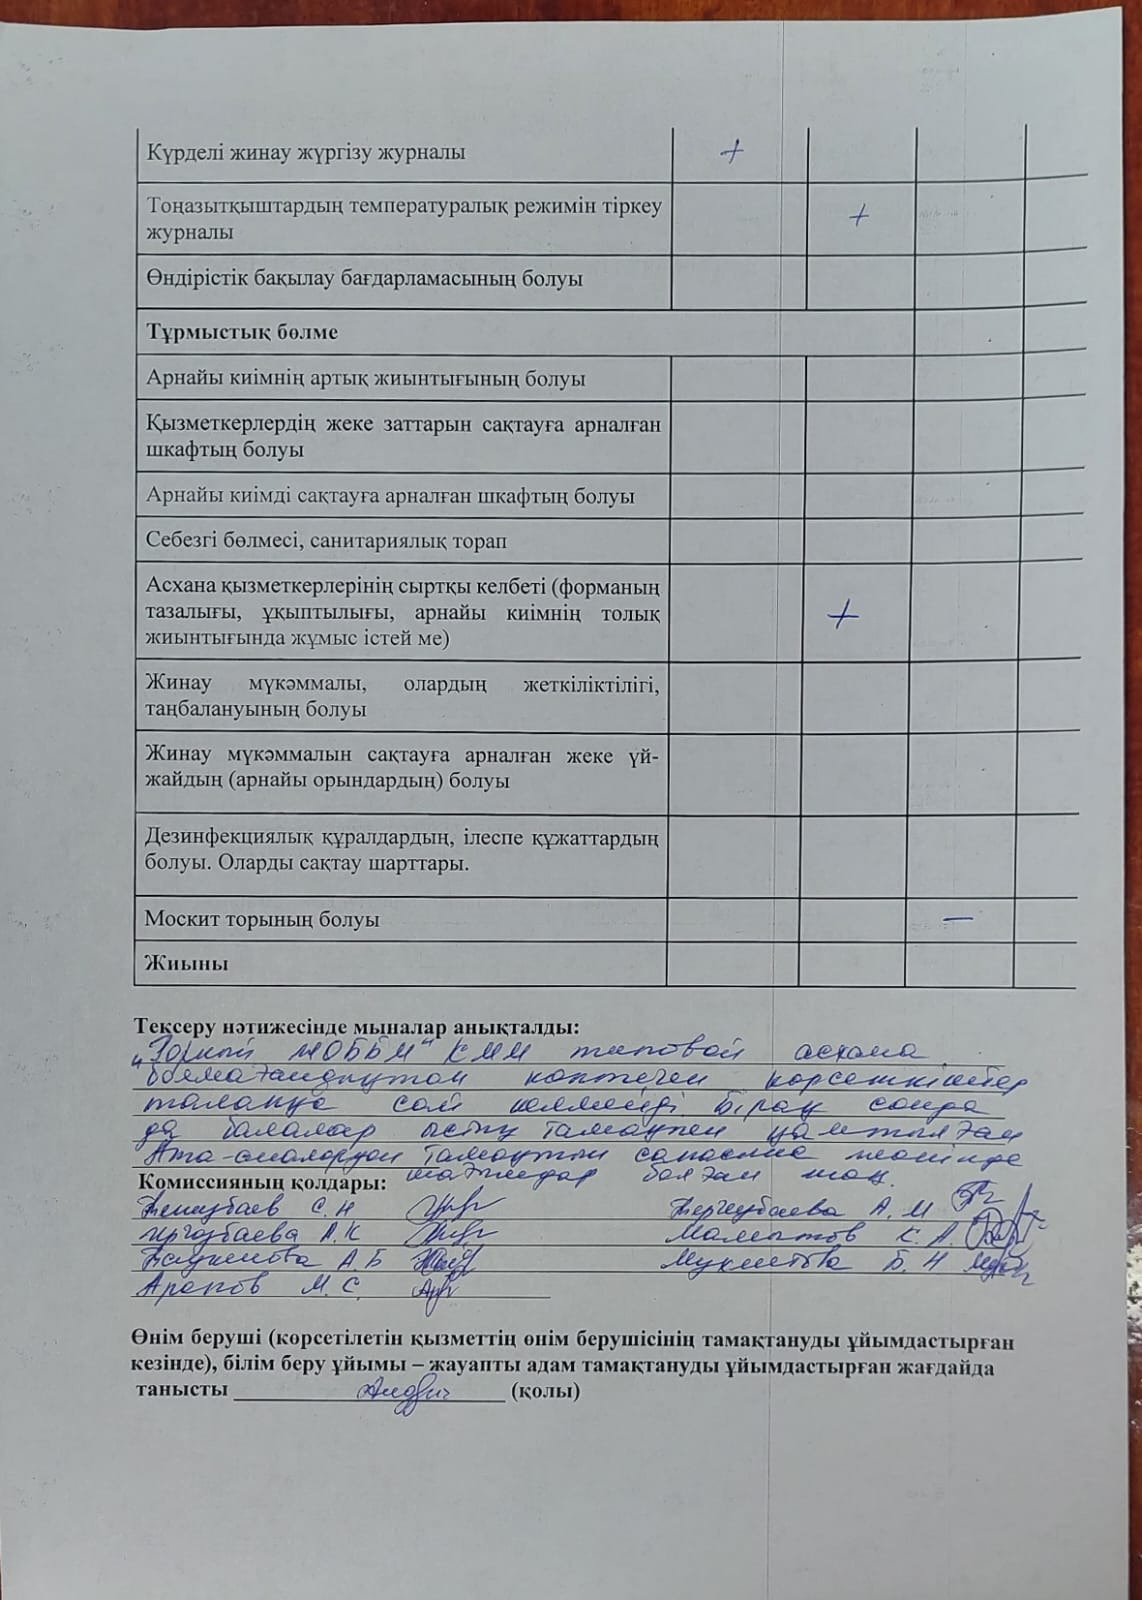 Күрделі жинау жүргізу журналы +
Тоңазытқыштардың температуралық режимін тіркеу +
журналы
Өндірістік бақылау бағдарламасының болуы
Тұрмыстық бөлме
Арнайы киімнің артық жиынтығының болуы
Қызметкерлердің жеке заттарын сақтауға арналған
шкафтың болуы
Арнайы киімді сақтауға арналған шкафтың болуы
Себезгі бөлмесі, санитариялық торап
Асхана қызметкерлерінің сыртқы келбеті (форманың
тазалығы, ұқыптылығы, арнайы киімнің толық +
жиынтығында жұмыс істей ме)
Жинау мүкәммалы, олардың жеткіліктілігі,
таңбалануының болуы
Жинау мүкәммалын сақтауға арналған жеке үй-
жайдың (арнайы орындардың) болуы
Дезинфекциялық құралдардың, ілеспе құжаттардың
болуы. Оларды сақтау шарттары.
Москит торының болуы —
Жиыны
Тексеру нәтижесінде мыналар анықталды:
ЖОББМ" КММ типовой асхана
болмағандықтан көптеген көрсеткіштер
талапқа сай келмейді. Бірақ сонда
да балалар ыстық тамақпен қамтылған
Ата-аналардан тамақтың сапасына
Комиссияның қолдары: шағымдар болған жоқ.
С. Н А. М
А. К Маметов К. А.
А. Б Б. Н
Арапов М. С.
Өнім беруші (көрсетілетін қызметтің өнім берушісінің тамақтануды ұйымдастырған
кезінде), білім беру ұйымы – жауапты адам тамақтануды ұйымдастырған жағдайда
танысты (қолы)